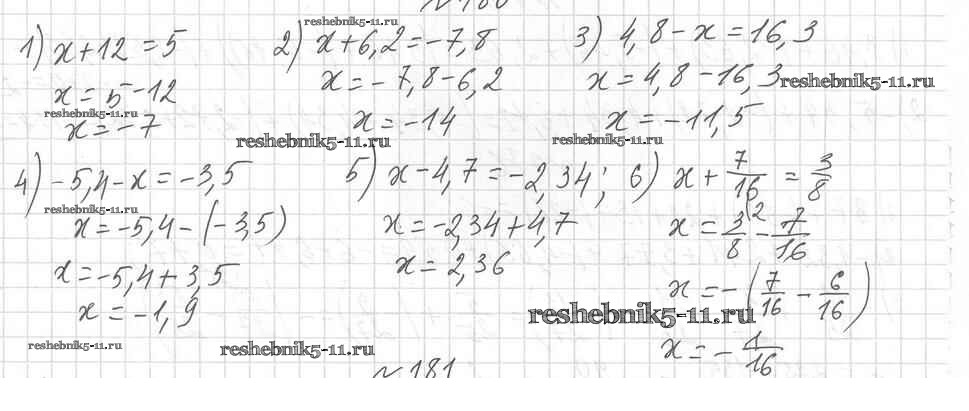 1) x+12=5
x=5-12
x=-7
2) x+6,2=-7,8
x=-7,8-6,2
x=-14
3) 4,8-x=16,3
x=4,8-16,3
x=-11,5
4) -5,4-x=-3,5
x=-5,4-(-3,5)
x=-5,4+3,5
x=-1,9
5) x-4,7=-2,34;
x=-2,34+4,7
x=2,36
6) x+7/16=3/8
x=3/8(2-7/16
x=-(7/16-6/16)
x=-1/16
№181
reshebnik5-11.ru
reshebnik5-11.ru
reshebnik5-11.ru
reshebnik5-11.ru
reshebnik5-11.ru
reshebnik5-11.ru
reshebnik5-11.ru
reshebnik5-11.ru
reshebnik5-11.ru